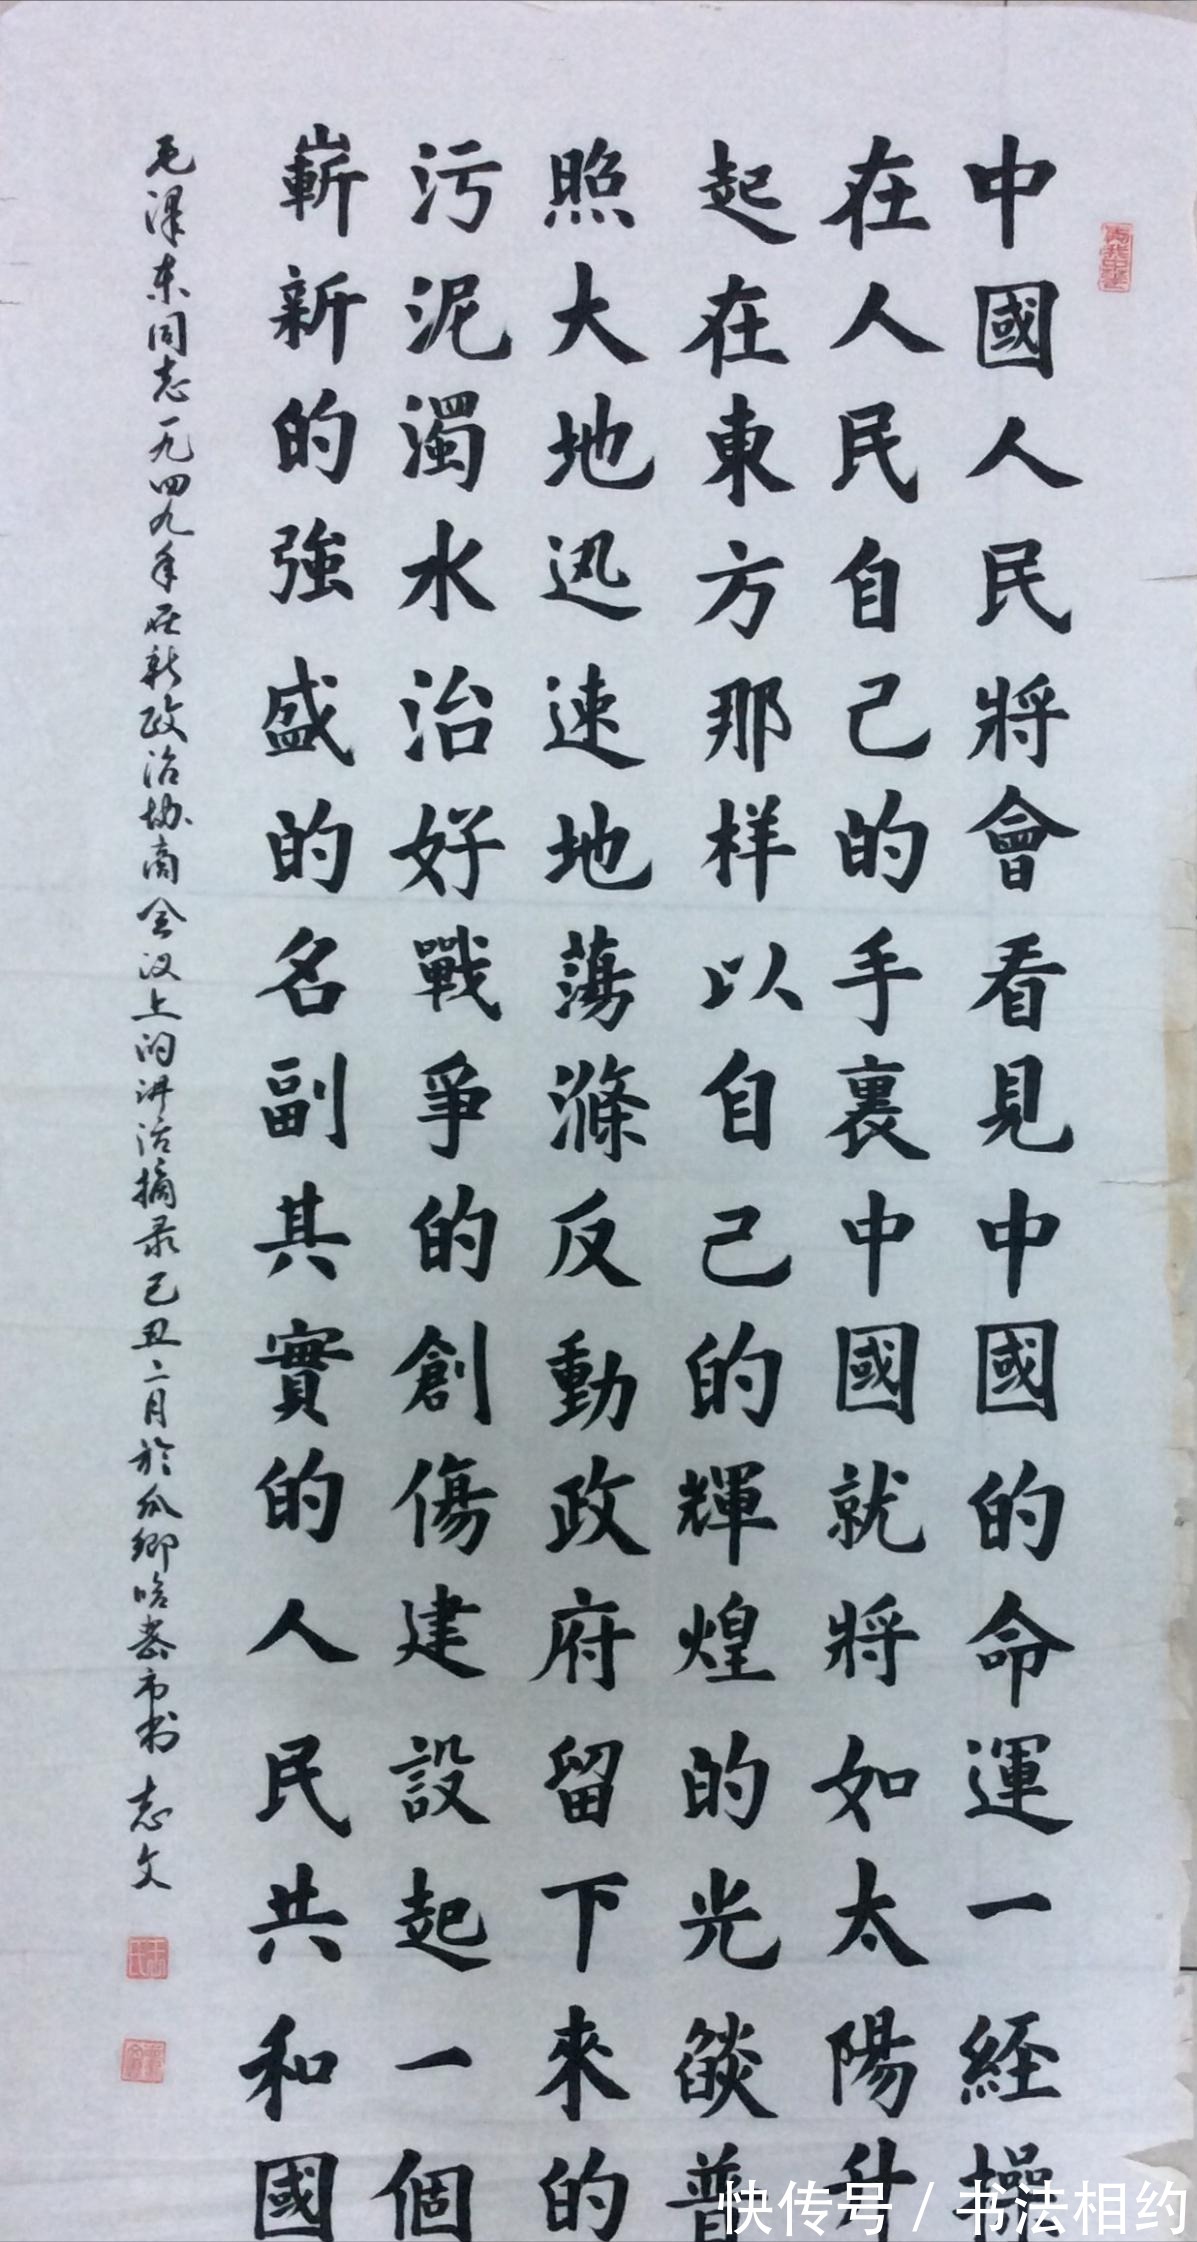 中國人民將會看見中國的命運一経操
在人民自己的手裏中國就將如太陽升
起在東方那样以自己的輝煌的光燄普
照大地迅速地蕩滌反動政府留下來的
污泥濁水治好戰爭的創傷建設起一個
嶄新的強盛的名副其實的人民共和國
毛泽东同志一九四九年在新政治协商会议上的讲话摘录己丑二月於瓜鄉 志文
快传号 / 书法相约